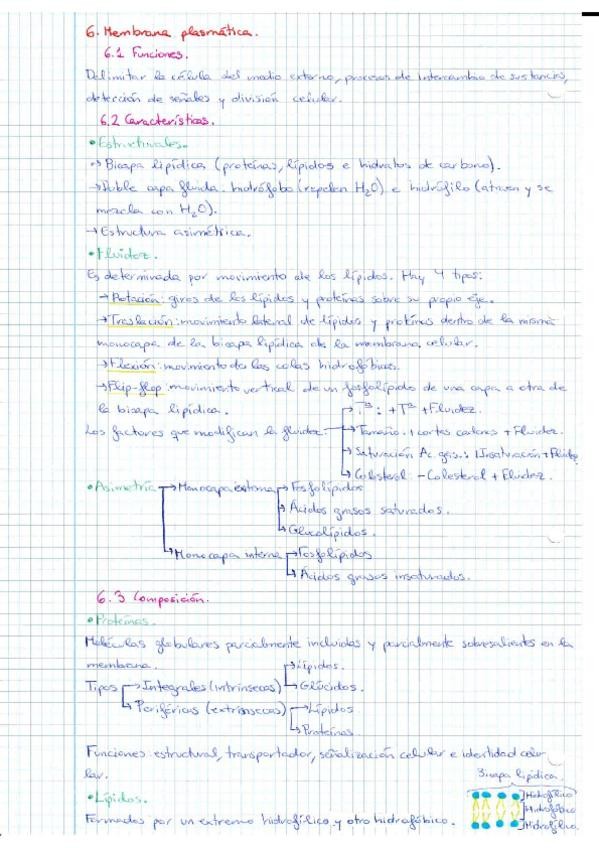 6. Membrana plasmática.
6.1 Funciones.
Delimitar la célula del medio externo, procesos de intercambio de sustancias,
detección de señales y división celular.
6.2 Características.
• Estructurales.
→ Bicapa lipídica (proteínas, lípidos e hidratos de carbono).
→ Doble capa fluida. hidrófobo (repelen H₂O) e hidrófilo (atraen y se
mezcla con H₂O).
→ Estructura asimétrica.
• Fluidez.
Es determinada por movimiento de los lípidos. Hay 4 tipos:
→ Rotación: giros de los lípidos y proteínas sobre su propio eje.
→ Traslación: movimiento lateral de lípidos y proteínas dentro de la misma
monocapa de la bicapa lipídica de la membrana celular.
→ Flexión: movimiento de las colas hidrofóbicas.
→ Flip-flop: movimiento vertical de un fosfolípido de una capa a otra de
la bicapa lipídica.
Los factores que modifican la fluidez:
→ Tª: +Tª +Fluidez.
→ Tamaño: cortas cadenas + Fluidez.
→ Saturación Ac. gras.: Insaturación + Fluidez
→ Colesterol: - Colesterol + Fluidez.
• Asimetría → Monocapa externa → Fosfolípidos
→ Ácidos grasos saturados.
→ Glucolípidos.
→ Monocapa interna → Fosfolípidos
→ Ácidos grasos insaturados.
6.3 Composición.
• Proteínas.
Moléculas globulares parcialmente incluidas y parcialmente sobresalientes en la
membrana.
Tipos → Integrales (intrínsecas) → Lípidos.
→ Glúcidos.
→ Periféricas (extrínsecas) → Lípidos.
→ Proteínas.
Funciones: estructural, transportador, señalización celular e identidad celu-
lar.
• Lípidos.
Formados por un extremo hidrofílico y otro hidrofóbico.
Bicapa lipídica.
Hidrofílico
Hidrofóbico
Hidrofílico.